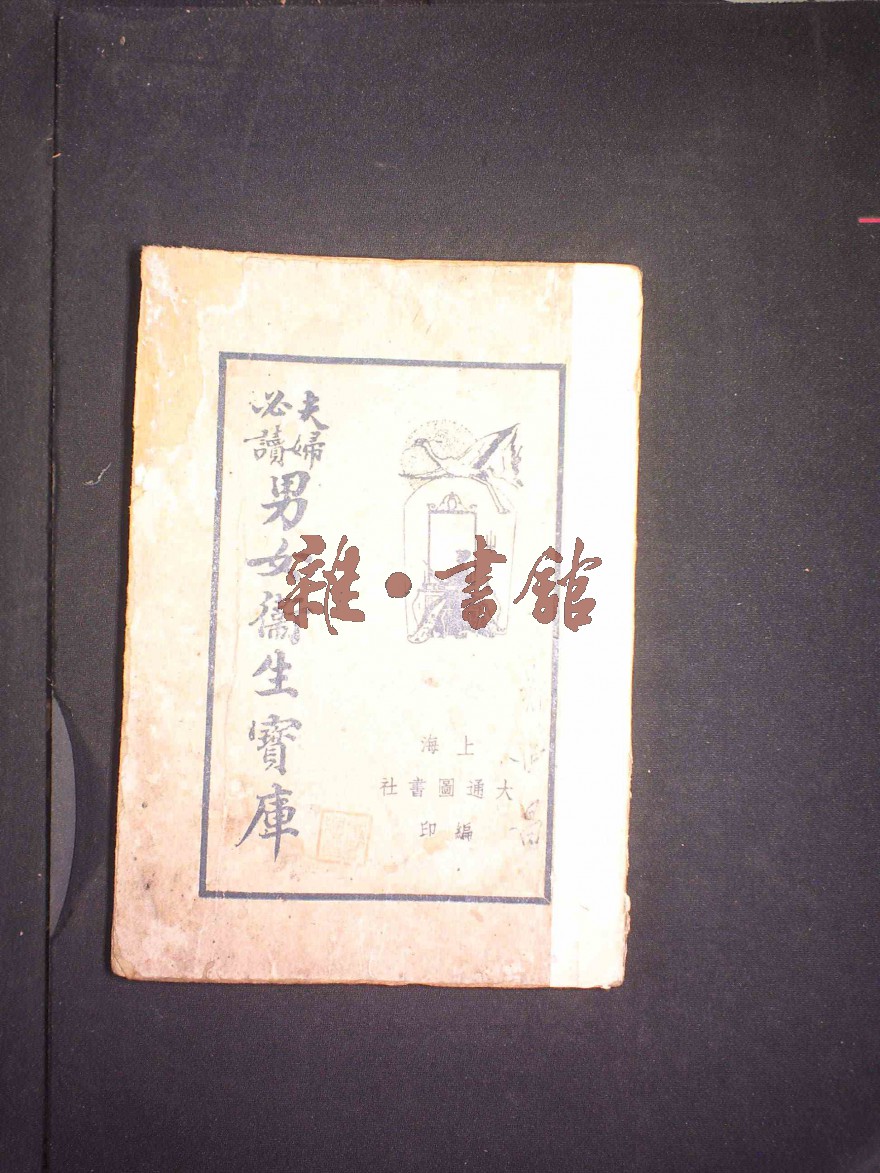 夫婦
必讀
男女衞生寶庫
上海
大通圖書社
編印
雜·書館